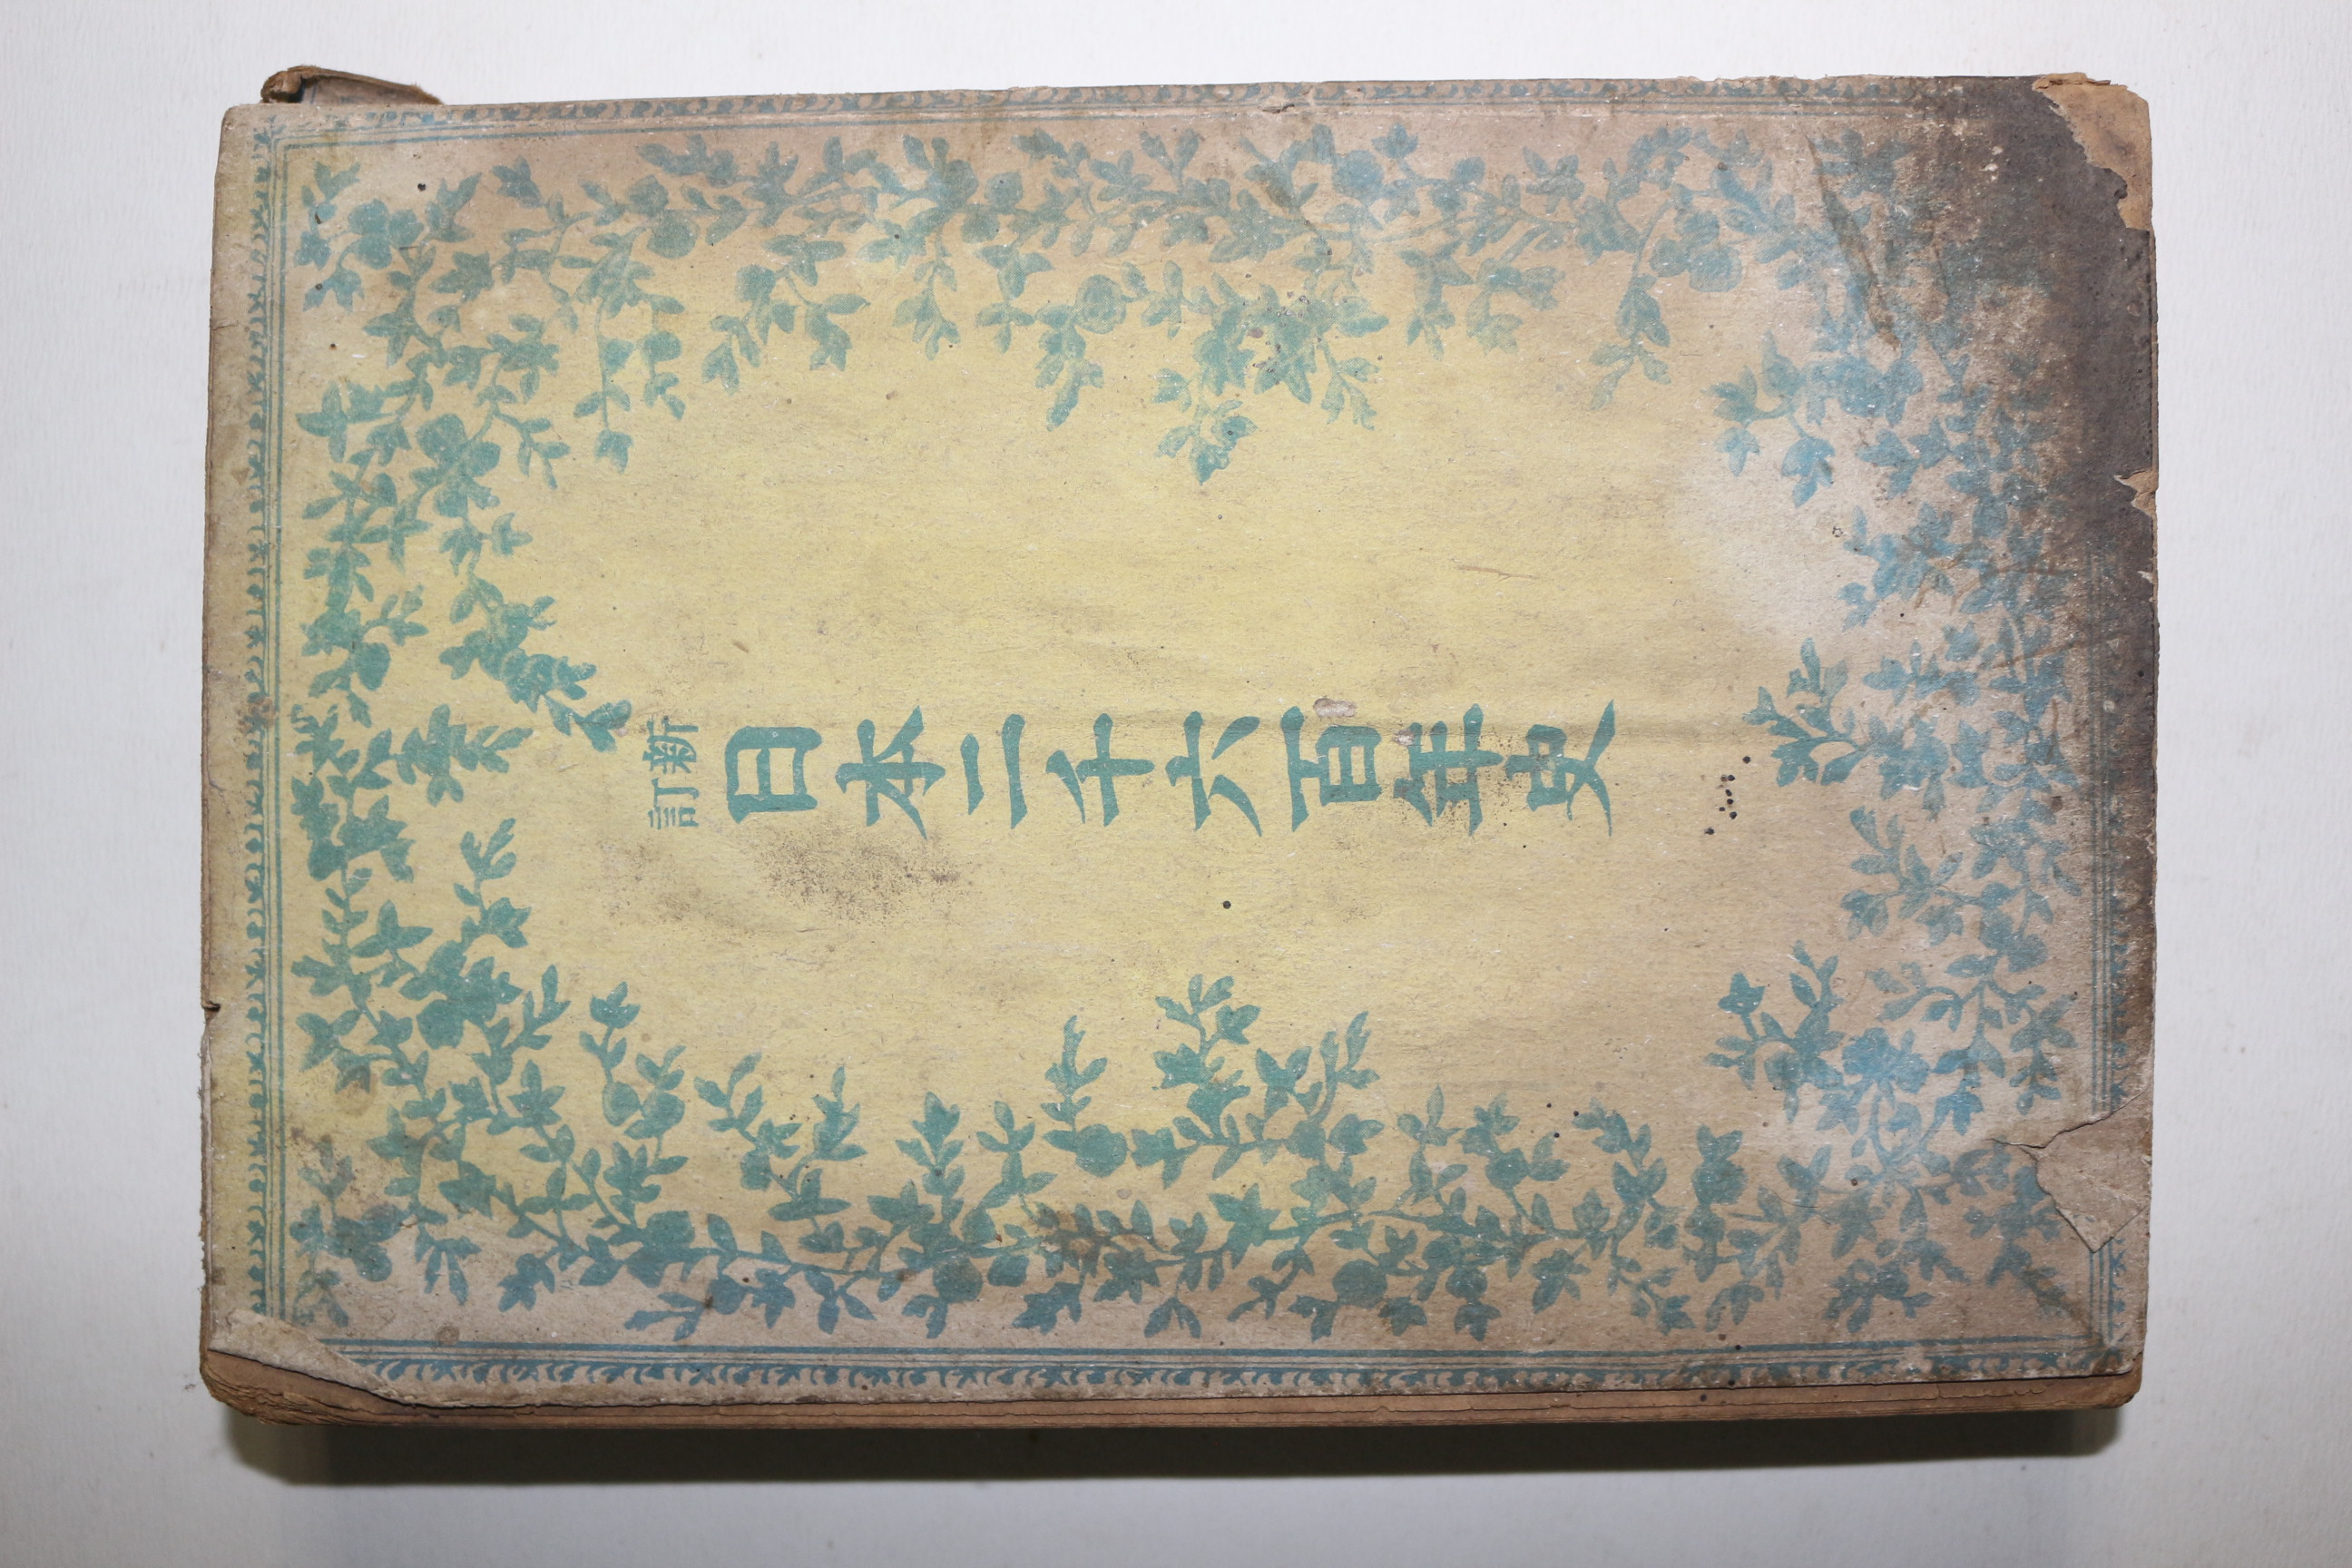 新訂
日本二千六百年史